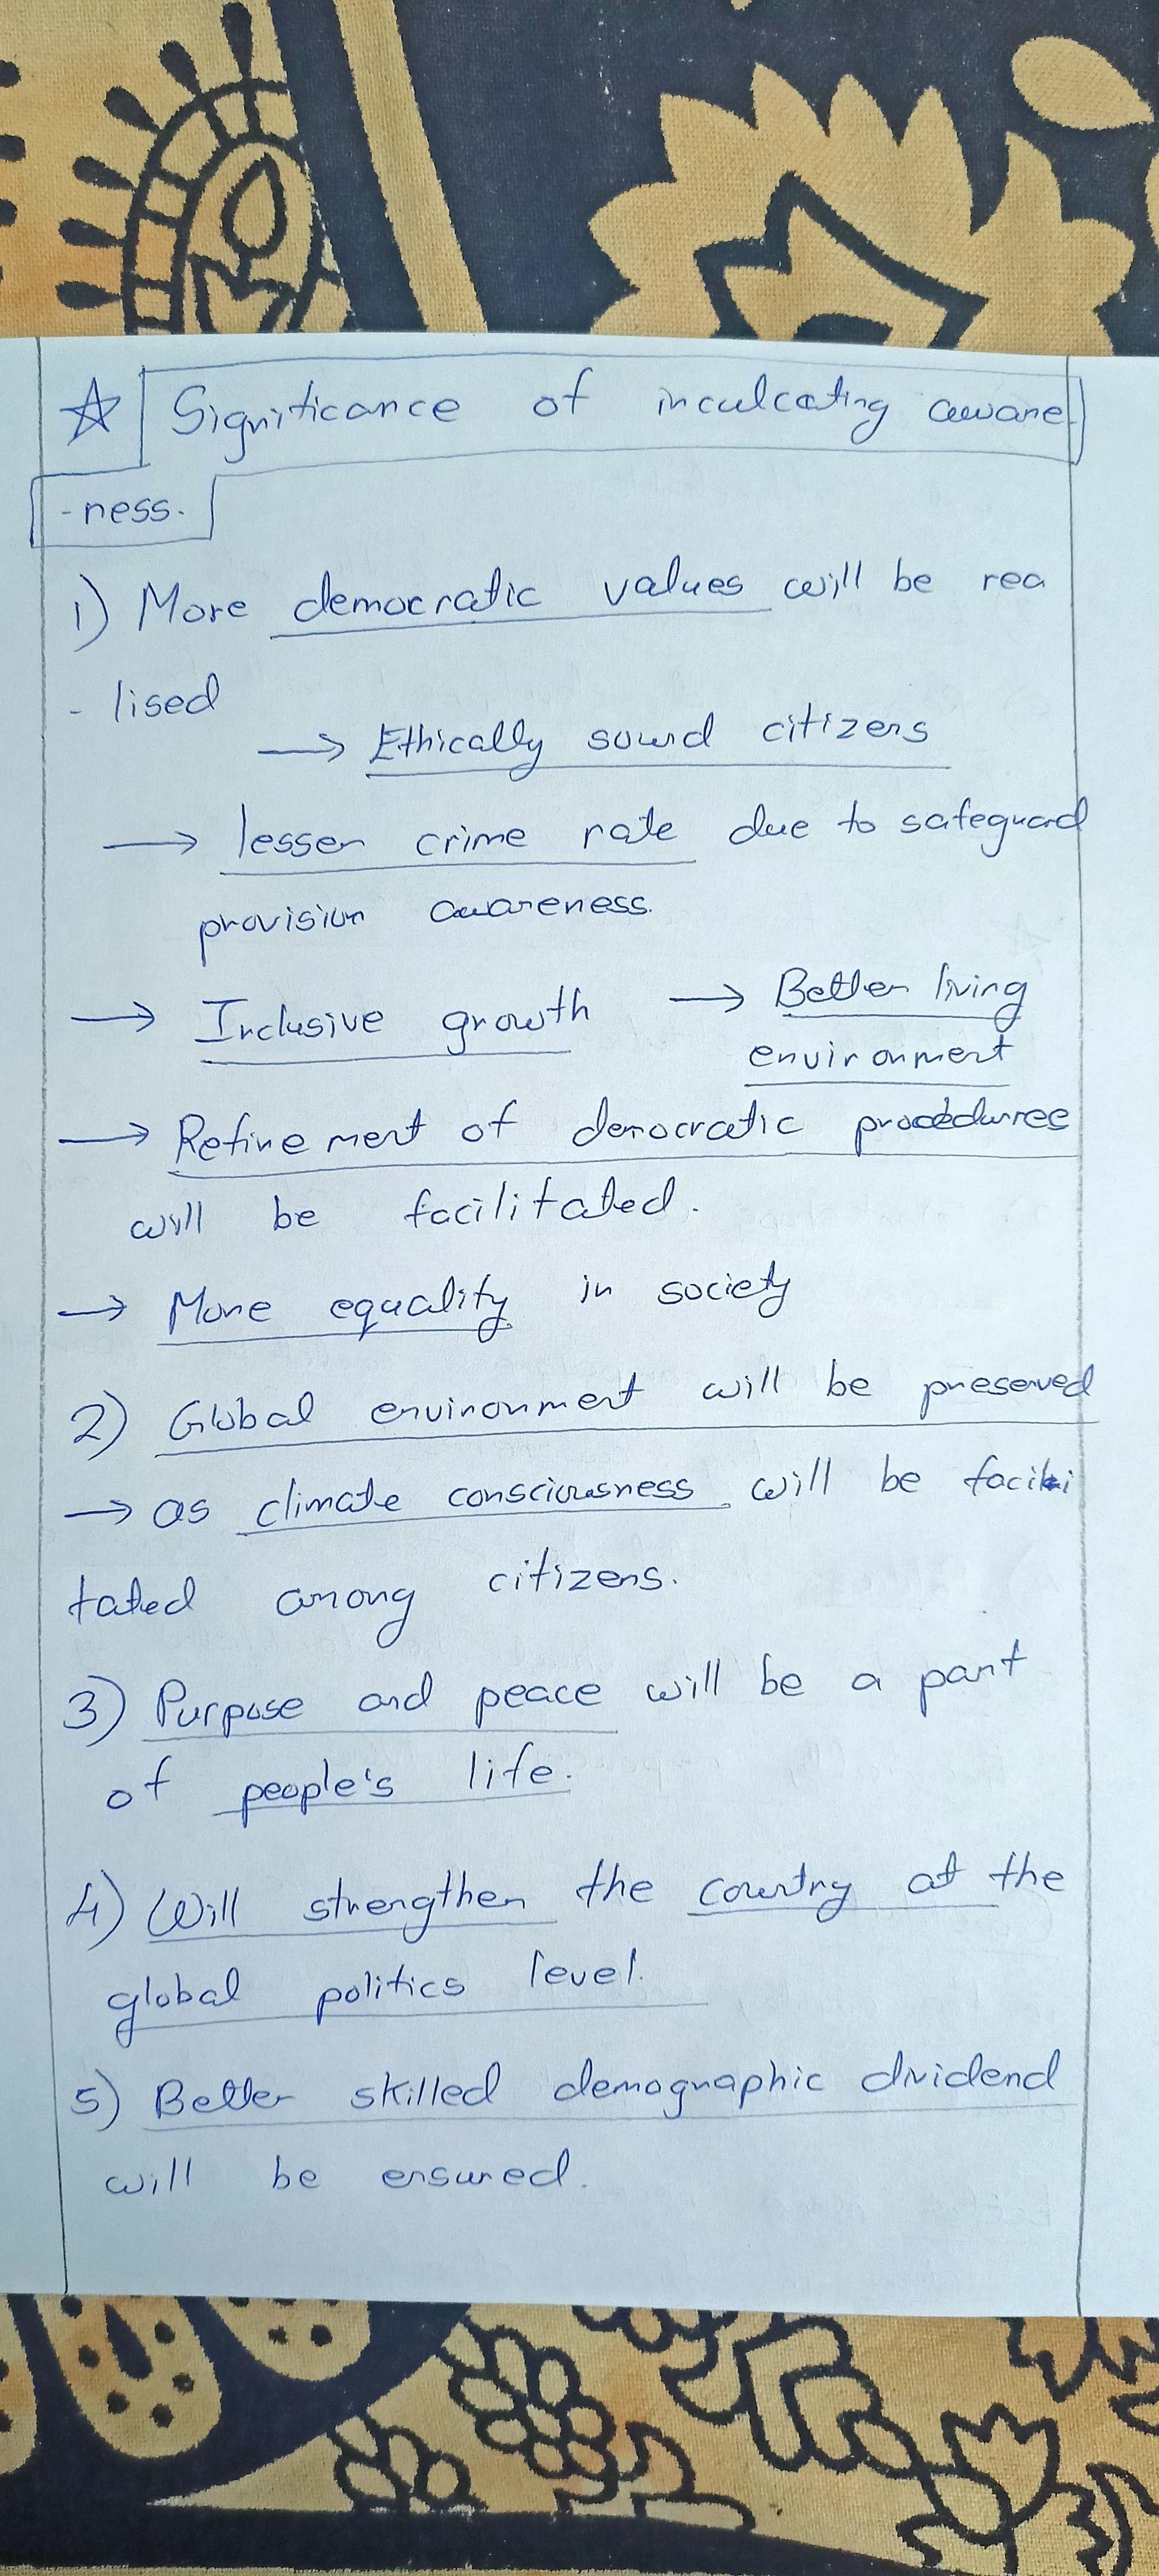 ☆ Significance of inculcating aware
-ness.
1) More democratic values will be rea
- lised
→ Ethically sound citizens
→ lesser crime rate due to safeguard
provision awareness.
→ Inclusive growth → Better living
environment
→ Refinement of democratic procedures
will be facilitated.
→ More equality in society
2) Global environment will be preserved
→ as climate consciousness will be facili
tated among citizens.
3) Purpose and peace will be a part
of people's life.
4) Will strengthen the country at the
global politics level.
5) Better skilled demographic dividend
will be ensured.